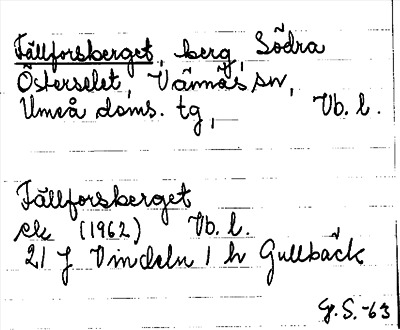 Fällforsberget, berg, Södra
Österselet, Vännäs sn,
Umeå doms. tg, Vb. l.
Fällforsberget
ek (1962) Vb. l.
21 J Vindeln 1 h Gullbäck
G.S.-63